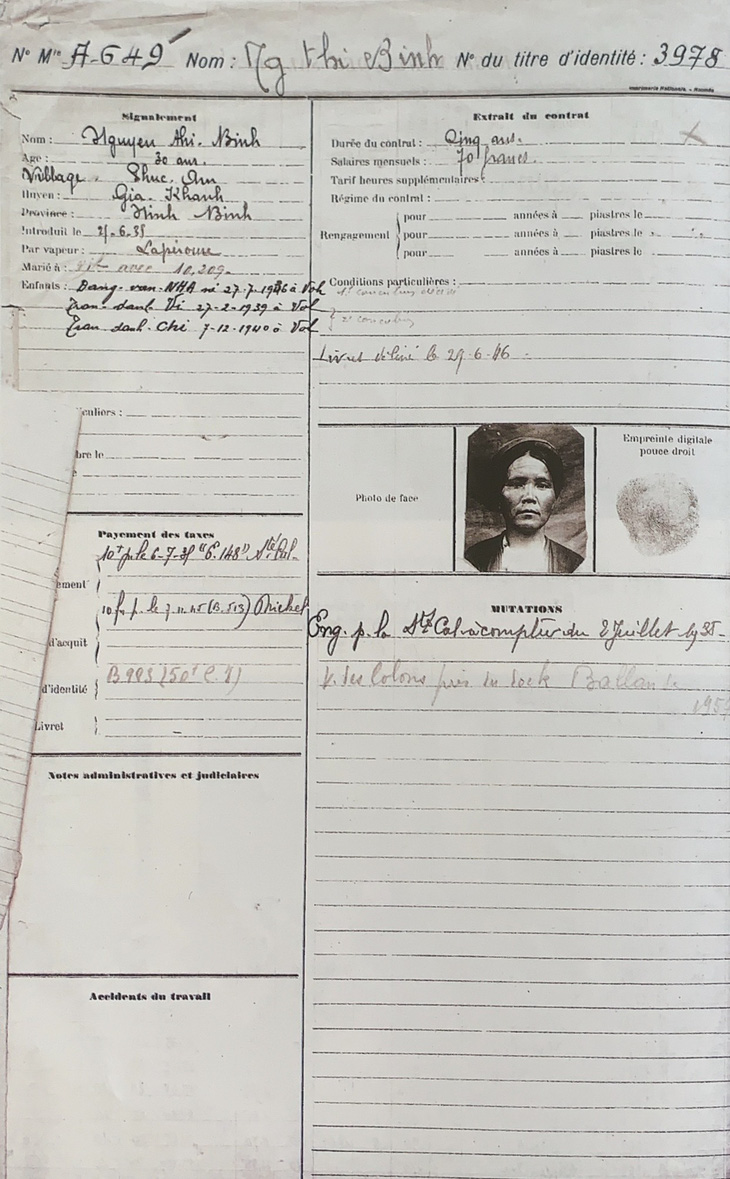 N° Mle A-649 Nom : Ng thi Binh N° du titre d'identité : 3978
Imprimerie Nationale - Nouméa
Signalement
Nom : Nguyen thi. Binh
Age : 30 ans.
Village Phuc. Am
Huyen : Gia. Khanh
Province : Ninh Binh
Introduit le 2/-6-35
Par vapeur : Lapérouse
Marié à : avec 10,209-
Enfants : Dang-van-NHA né 27.7.1936 à Voh
Tran-danh. Vi 27-2-1939 à Voh
Tran danh-Chi 7-12-1940 à Voh
culiers :
bre le
Extrait du contrat
Durée du contrat : Cinq ans.
Salaires mensuels : 70 francs.
Tarif heures supplémentaires :
Régime du contrat :
pour années à piastres le
Rengagement pour années à piastres le
pour années à piastres le
Conditions particulières :
2e concubin
Livret délivré le 29-6-46
Photo de face
Empreinte digitale
pouce droit
Payement des taxes
10f p. le 6-7-35 "E. 148" Sté Cal-
ement
10 f. p. le 7.11.45 (B.513) Michel
d'acquit
B 993 (50f
d'identité
Livret
MUTATIONS
Eng. p. la Sté Cal à compter du 2 Juillet 1935-
V. des Colons près du dock Ballande
195
Notes administratives et judiciaires
Accidents du travail